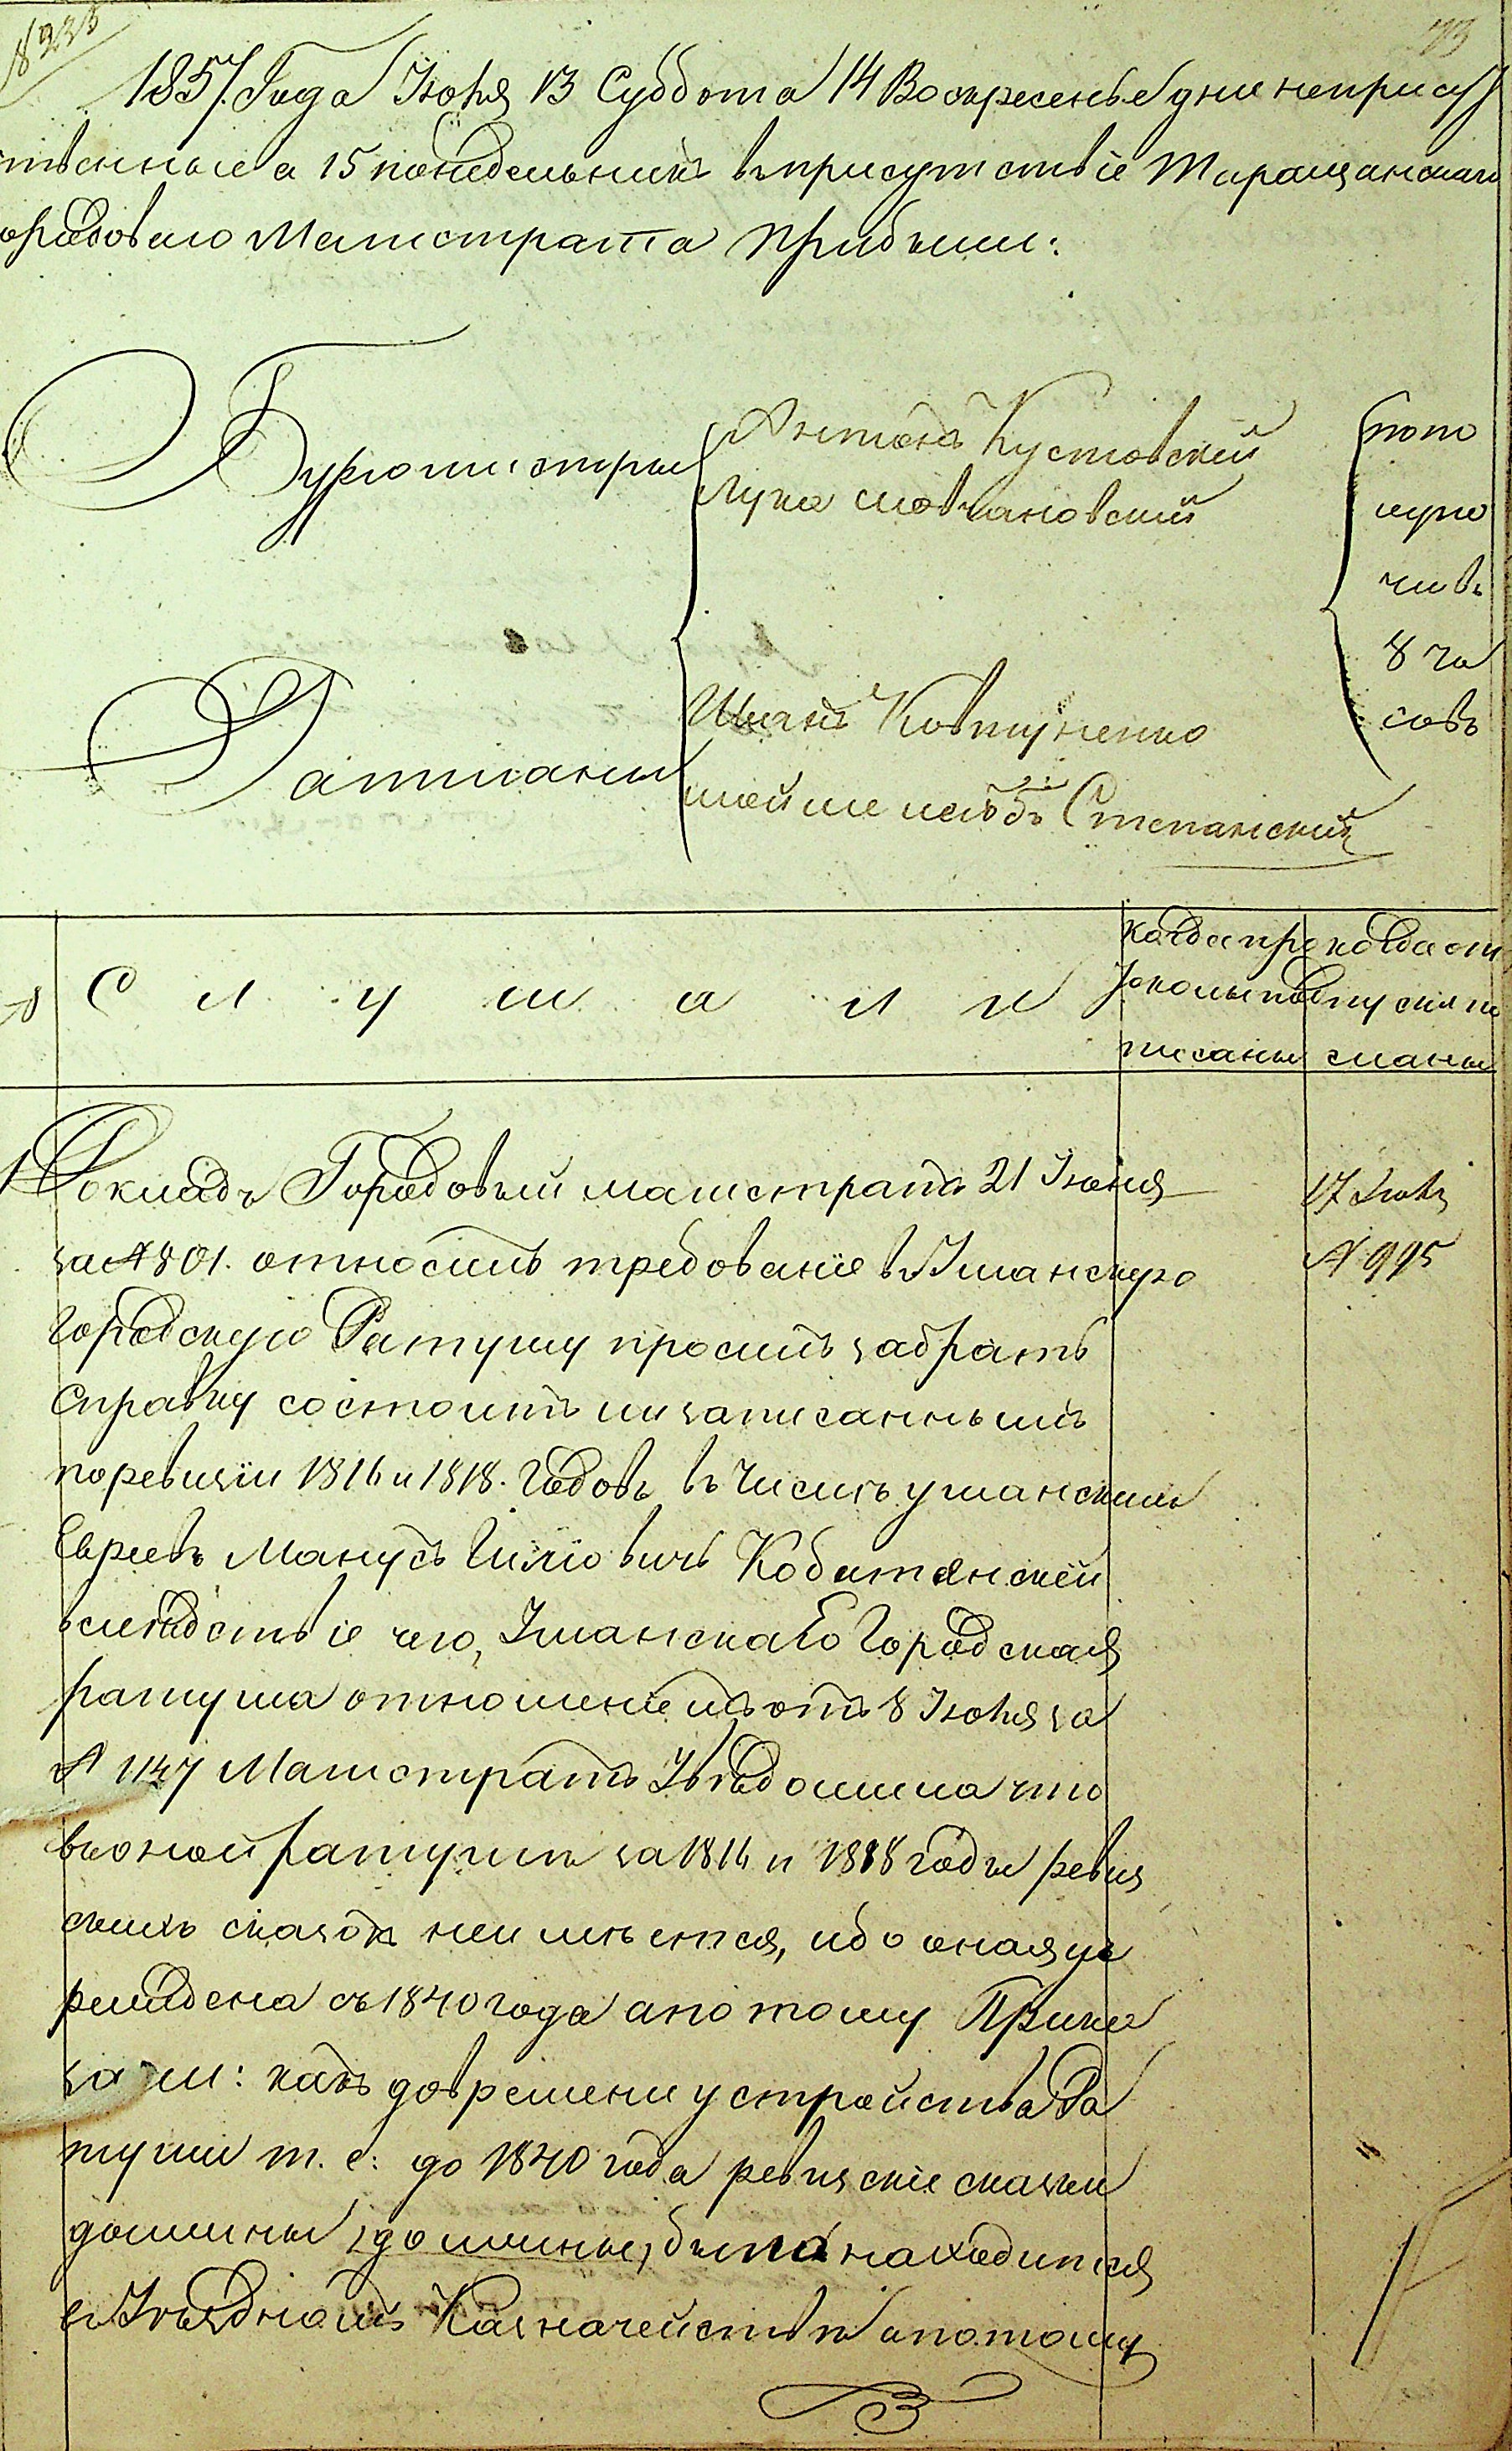 № 235
73
1857 Года Іюня 13 Суббота 14 Воскресенье дни неприсут
твенные а 15 понедельникъ въ присутствіе Таращанскаго
ородоваго Магистрата прибыли:
Бургомистры
Антонъ Кустовскій
Лука Мовчановскій
Ратманы
Иванъ Ковтуненко
Степанскій
по по
луно
чи въ
8 ча
совъ
№ С л у ш а л и
когда про
токолы под
писаны
когда от
пуски по
сланы
1 Докладъ Городовый магистратъ 21 Іюня
за № 801. относилъ требованіе въ Уманскую
Городскую Ратушу просилъ забрать
справку состоитъ ли записаннымъ
по ревизіи 1816 и 1818. Годовъ въ числѣ уманскихъ
Евреевъ Манусъ Гиліовичъ Кобитянскій
вслѣдствіе чего, Уманская Городская
ратуша отношеніемъ отъ 8 Іюня за
№ 1147 Магистратъ Увѣдомила что
въ оной ратушѣ за 1816 и 1818 годы ревиз
скихъ сказокъ не имѣется, ибо оная уч
реждена съ 1840 года а по тому Прика
зали: какъ до времени устройства Ра
туши т. е: до 1840 года ревизскіе сказки
должны, должны, быть находится
въ Уѣздномъ Казначействѣ а потому
17 Іюня
№ 995